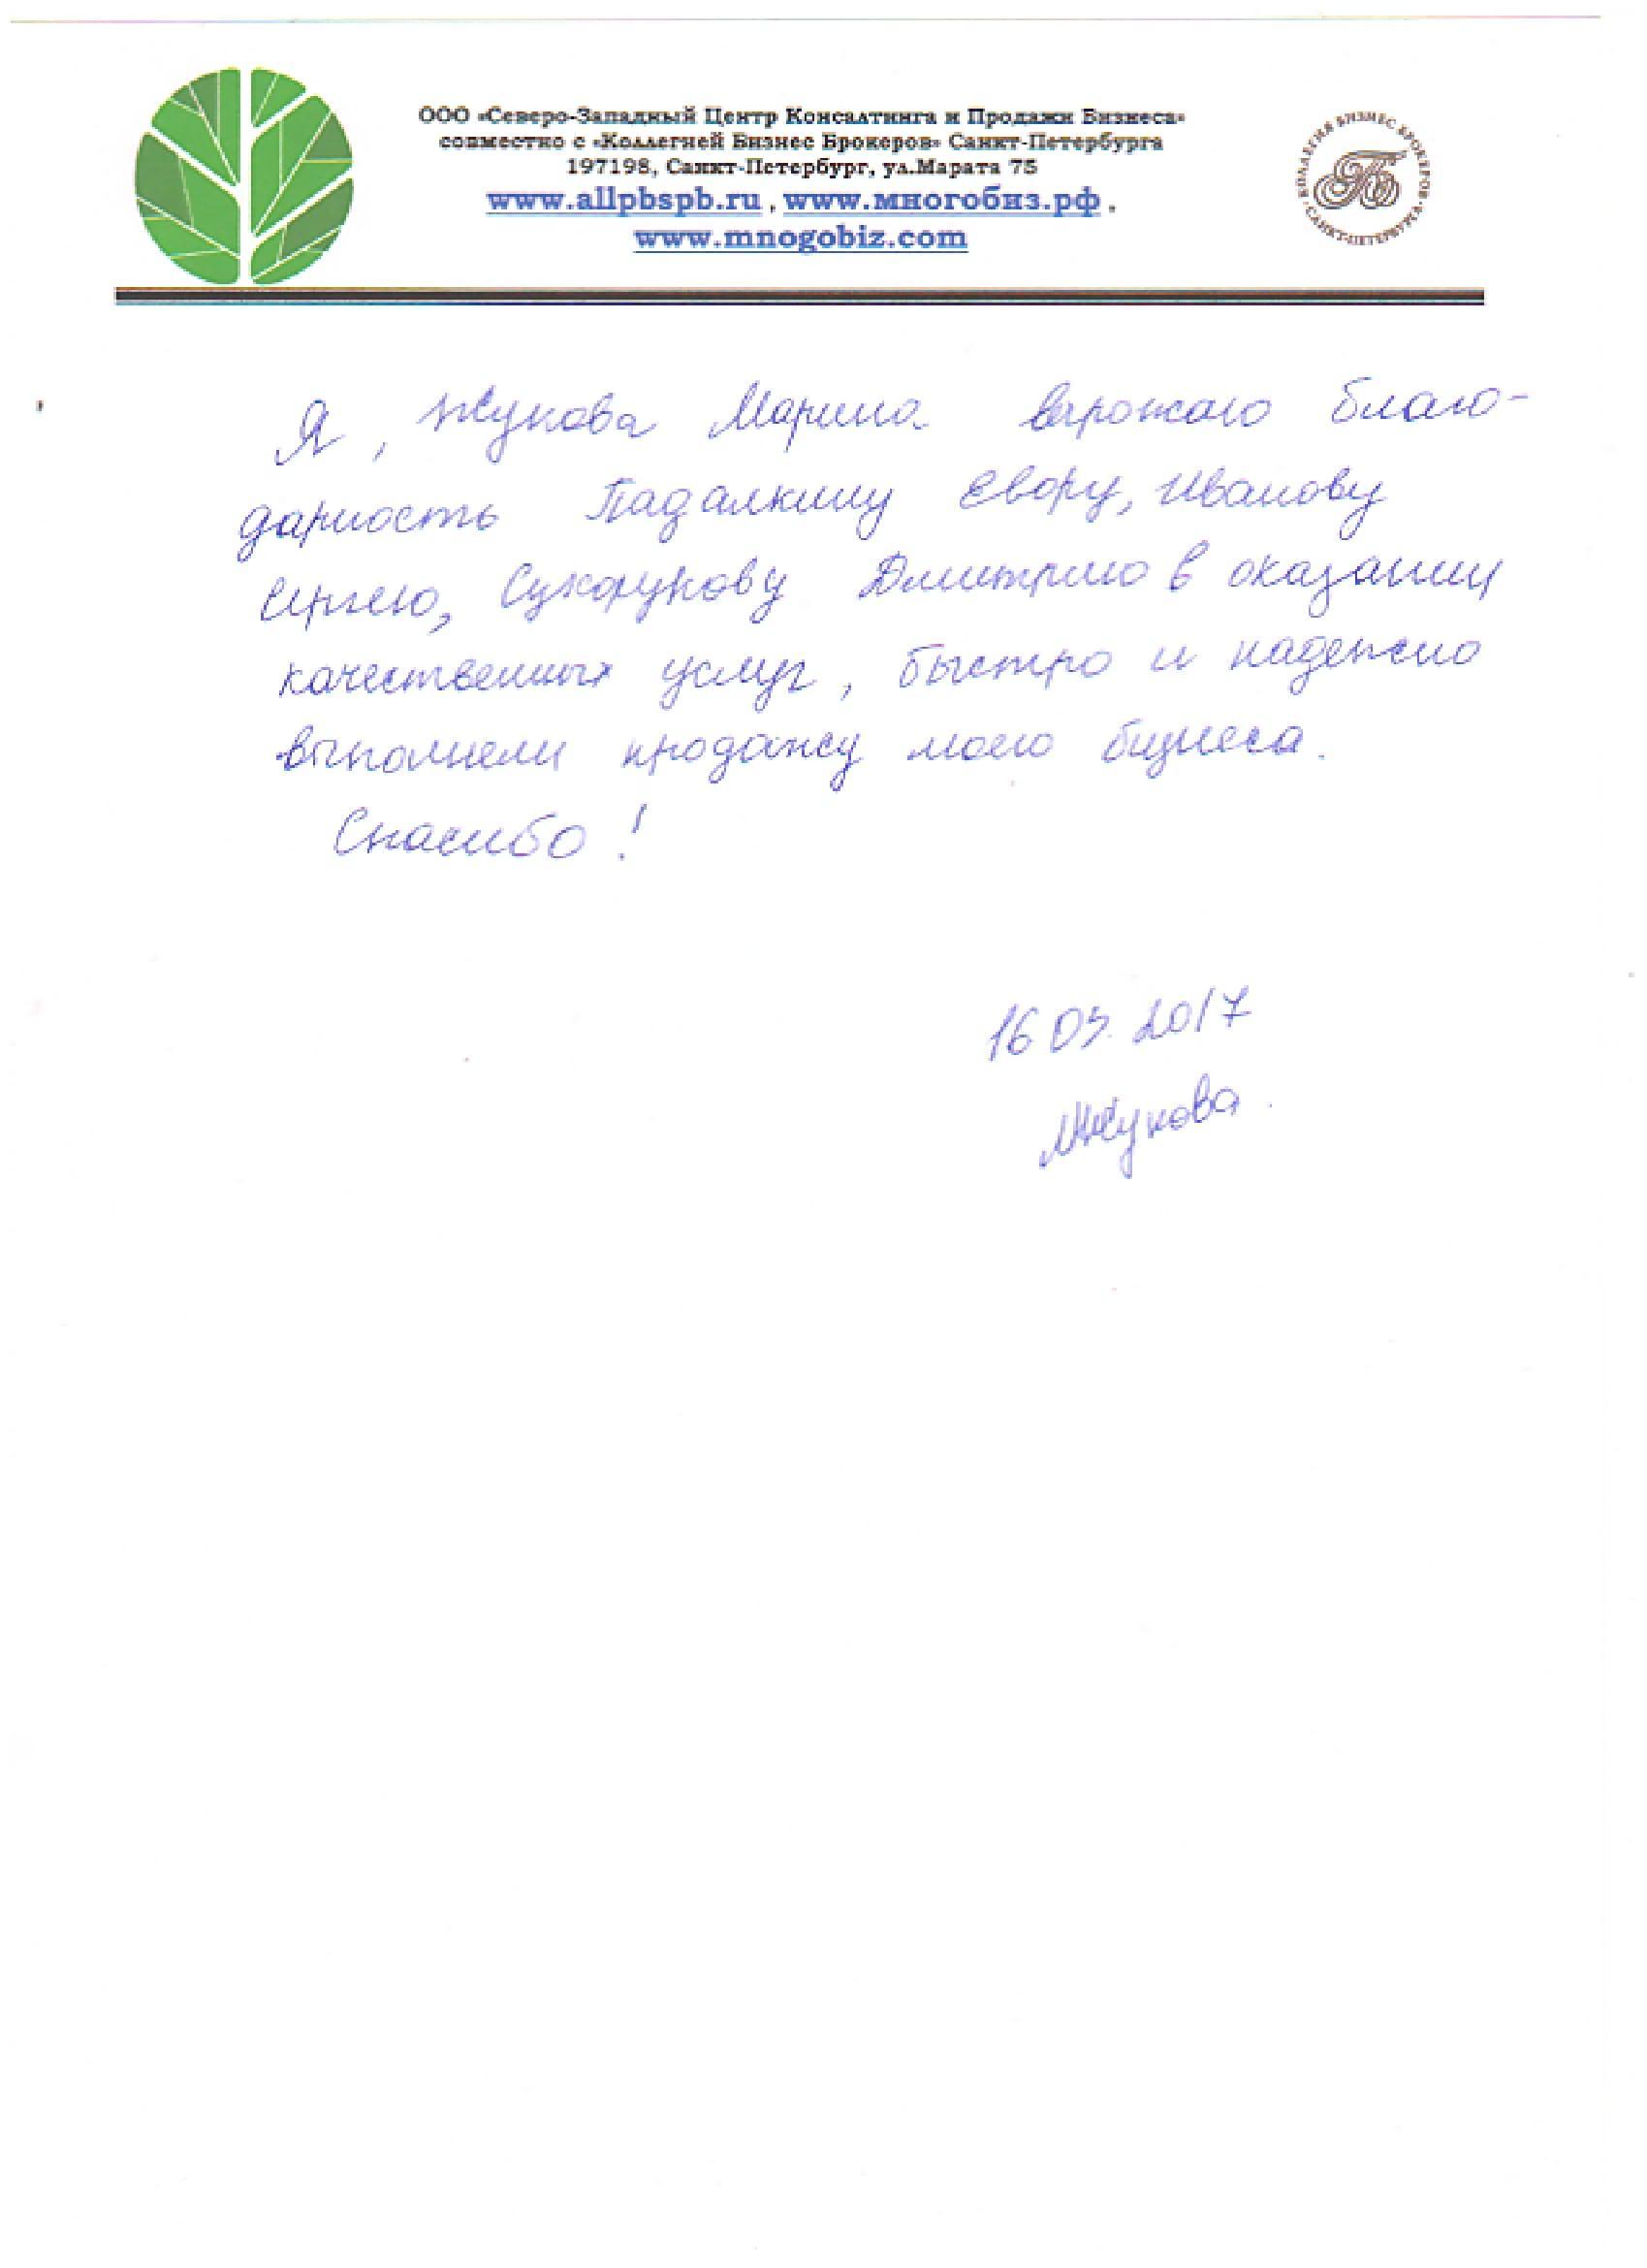 ООО «Северо-Западный Центр Консалтинга и Продажи Бизнеса»
совместно с «Коллегией Бизнес Брокеров» Санкт-Петербурга
197198, Санкт-Петербург, ул.Марата 75
www.allpbspb.ru , www.многобиз.рф ,
www.mnogobiz.com
КОЛЛЕГИЯ БИЗНЕС БРОКЕРОВ · САНКТ-ПЕТЕРБУРГА ·
Я, Жукова Марина выражаю благо-
дарность Падалкину Егору, Иванову
Сергею, Сухорукову Дмитрию в оказании
качественных услуг, быстро и надежно
выполнели продажу моего бизнеса.
Спасибо!
16 03. 2017
МЖукова.